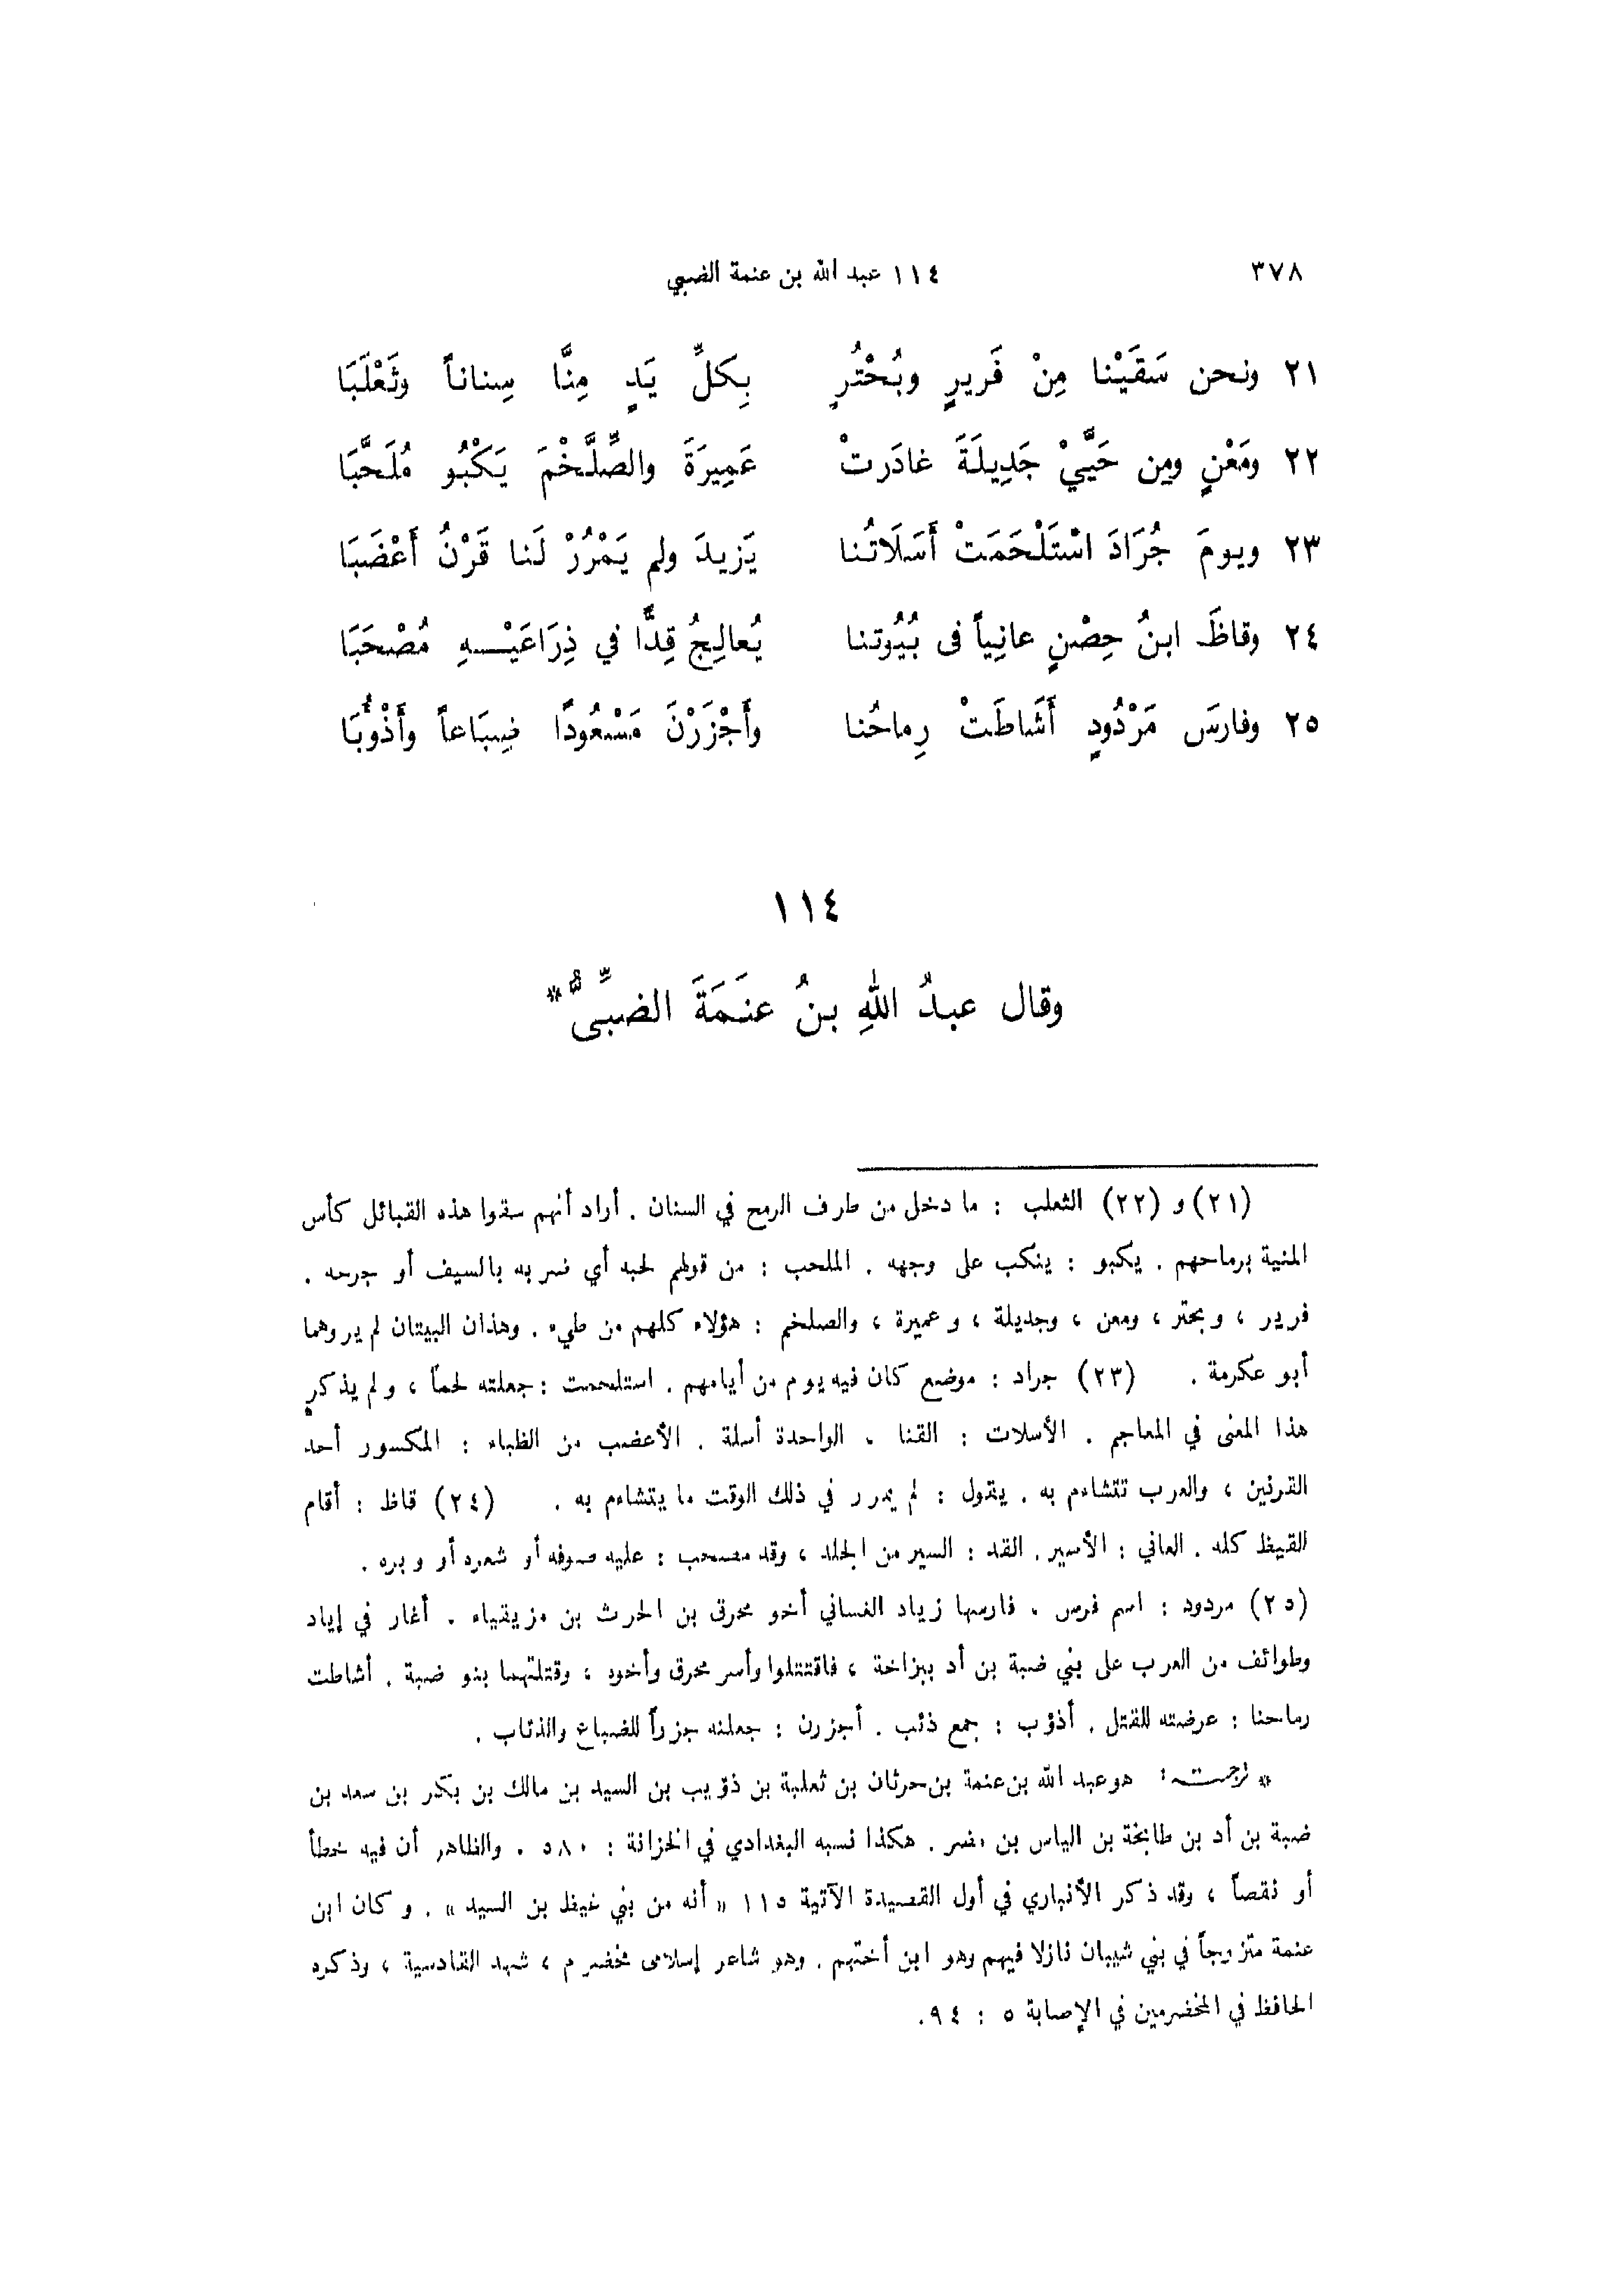 ٣٧٨ ١١٤ عبد الله بن عنمة الضبي
٢١ ونحن سَقَيْنا مِنْ فَريرٍ وبُحْتُرٍ بِكلِّ يَدٍ مِنَّا سِناناً وثَعْلَبَا
٢٢ ومَعْنٍ ومِن حَيَّيْ جَدِيلَةَ غادَرتْ عَمِيرَةَ والصِّلَّخْمَ يَكْبُو مُلَحَّبَا
٢٣ ويومَ جُرَادَ اسْتَلْحَمَتْ أَسَلَاتُنا يَزيدَ ولم يَمْرُرْ لَنا قَرْنُ أَعْضَبَا
٢٤ وقاظَ ابنُ حِصْنٍ عانِياً فى بُيُوتنا يُعالِجُ قِدًّا في ذِرَاعَيْــهِ مُصْحَبَا
٢٥ وفارسَ مَرْدُودٍ أَشَاطَتْ رِماحُنا وأَجْزَرْنَ مَسْعُودًا ضِبَاعاً وأَذْؤُبَا
١١٤
وقال عبدُ اللهِ بنُ عنَمَةَ الضبِّىُّ*
(٢١) و (٢٢) الثعلب : ما دخل من طرف الرمح في السنان . أراد أنهم سقوا هذه القبائل كأس
المنية برماحهم . يكبو : ينكب على وجهه . الملحب : من قولهم لحبه أي ضربه بالسيف أو جرحه .
فرير ، وبحتر ، ومعن ، وجديلة ، وعميرة ، والصلخم : هؤلاء كلهم من طيء . وهذان البيتان لم يروهما
أبو عكرمة . (٢٣) جراد : موضع كان فيه يوم من أيامهم . استلحمت : جعلته لحماً ، ولم يذكر
هذا المعنى في المعاجم . الأسلات : القنا ، الواحدة أسلة . الأعضب من الظباء : المكسور أحد
القرنين ، والعرب تتشاءم به . يقول : لم يمرر في ذلك الوقت ما يتشاءم به . (٢٤) قاظ : أقام
القيظ كله . العاني : الأسير . القد : السير من الجلد ، وقد مصحب : عليه صوفه أو شعره أو وبره .
(٢٥) مردود : اسم فرس ، فارسها زياد الغساني أخو محرق بن الحرث بن مزيقياء . أغار في إياد
وطوائف من العرب على بني ضبة بن أد ببزاخة ، فاقتتلوا وأسر محرق وأخوه ، وقتلتهما بنو ضبة . أشاطت
رماحنا : عرضته للقتل . أذؤب : جمع ذئب . أجزرن : جعلنه جزراً للضباع والذئاب .
* ترجمته : هو عبد الله بن عنمة بن حرثان بن ثعلبة بن ذؤيب بن السيد بن مالك بن بكر بن سعد بن
ضبة بن أد بن طابخة بن الياس بن مضر . هكذا نسبه البغدادي في الخزانة : ٥٨٠ . والظاهر أن فيه خطأ
أو نقصاً ، وقد ذكر الأنباري في أول القصيدة الآتية ١١٥ « أنه من بني غيظ بن السيد » . وكان ابن
عنمة متزوجاً في بني شيبان نازلا فيهم وهو ابن أختهم . وهو شاعر إسلامى مخضرم ، شهد القادسية ، وذكره
الحافظ في المخضرمين في الإصابة ٥ : ٩٤.